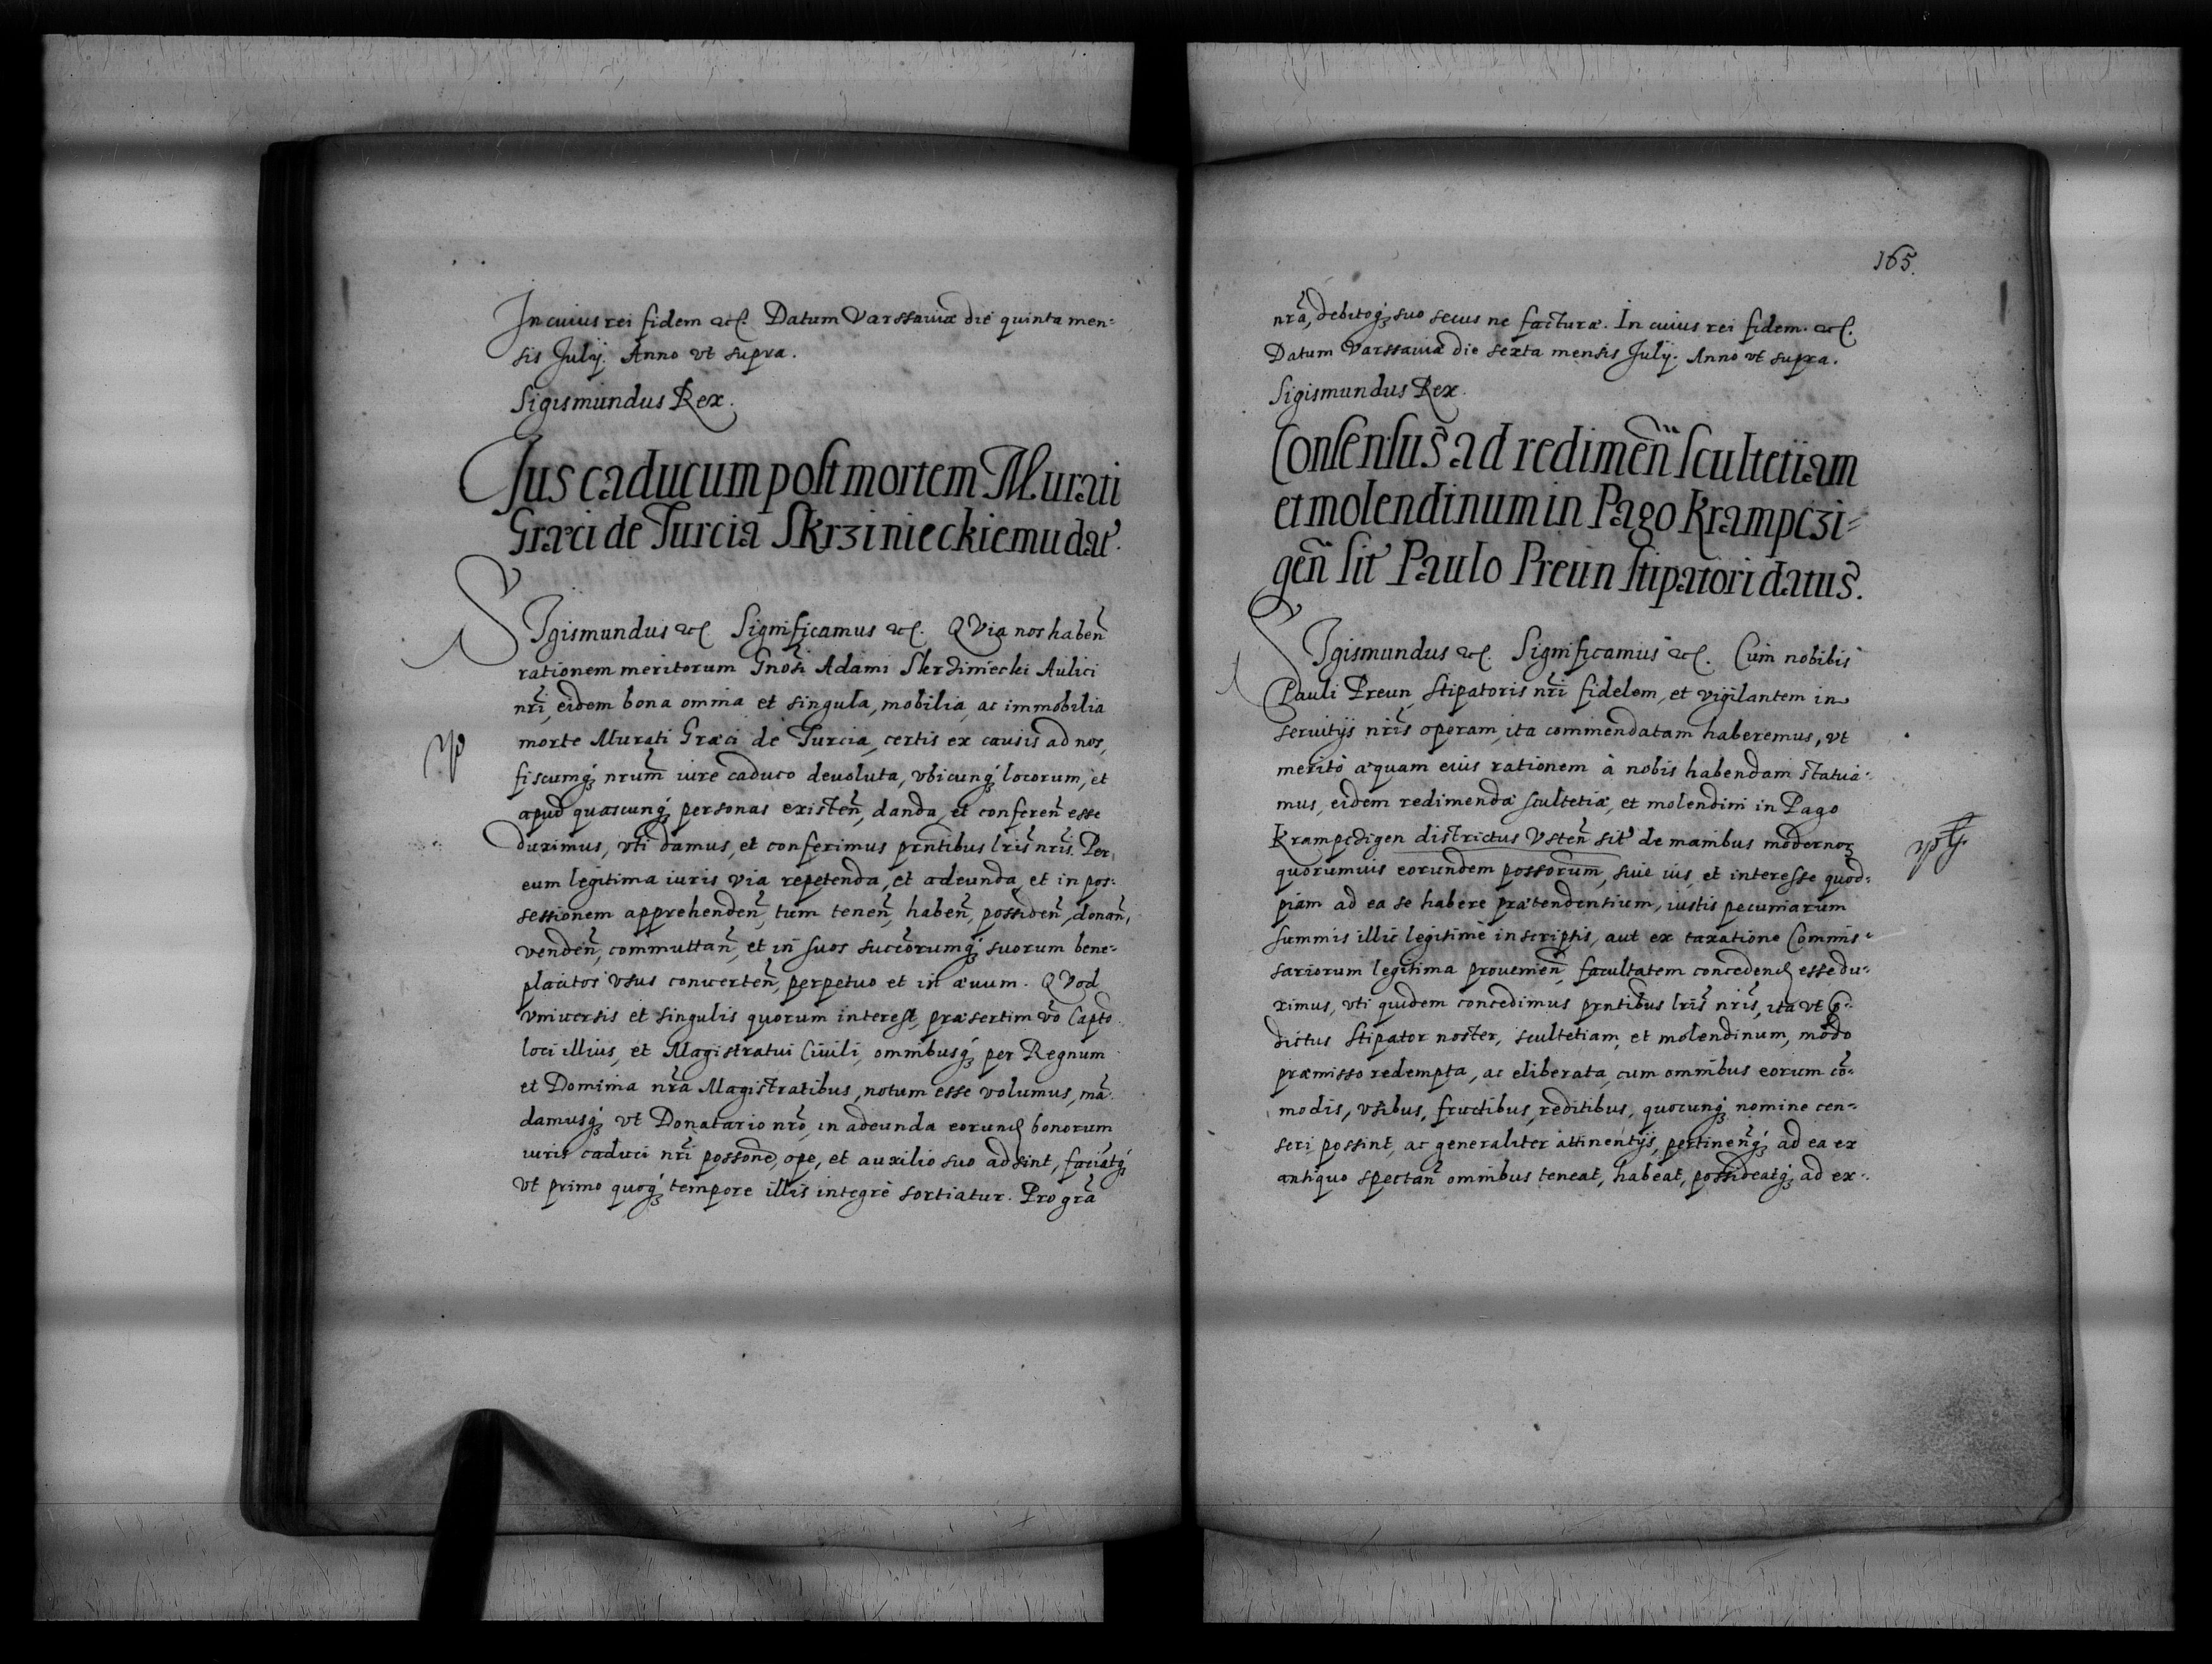 In cuius rei fidem etc. Datum Varssauiæ die quinta men=
sis Julij. Anno vt supra.
Sigismundus Rex.
Jus caducum post mortem Murati
Græci de Turcia Skrzinieckiemu dat̃.
SIgismundus etc. Significamus etc. QVia nos habeñ
rationem meritorum Gnosi Adami Skrziniecki Aulici
nr̃i, eidem bona omnia et singula, mobilia, ac immobilia
morte Murati Græci de Turcia, certis ex causis ad nos,
fiscumq́ꝫ nrum̃ iure caduco deuoluta, vbicunq́ꝫ locorum, et
apud quascunq́ꝫ personas existeñ, danda, et confereñ esse
duximus, vti damus, et conferimus prñtibus lris̃ nris̃. Per
eum legitima iuris via repetenda, et adeunda, et in pos:
sessionem apprehendeñ, tum teneñ, habeñ, possideñ, donañ,
vendeñ, commuttañ, et in suos succõrumq́ꝫ suorum bene=
placitos vsus conuerteñ, perpetuo et in æuum. QVod
vniuersis et singulis quorum interest, præsertim võ Capto
loci illius, et Magistratui Ciuili, omnibusq́ꝫ per Regnum
et Dominia nrã Magistratibus, notum esse volumus, mã
damusq́ꝫ vt Donatario nrõ, in adeunda eorund bonorum
iuris caduci nr̃i possone, ope, et auxilio suo adsint, faciãtq́ꝫ
vt primo quoq́ꝫ tempore illis integrè sortiatur. Pro grã
165.
nrã, debitoq́ꝫ suo secus ne facturæ. In cuius rei fidem. etc.
Datum Varssauiæ die sexta mensis Julij. Anno vt supra.
Sigismundus Rex.
Consensus ad redimeñ scultetiam
et molendinum in Pago Krampczi=
geñ sit̃ Paulo Preun stipatori datus.
SIgismundus etc. Significamus etc. Cum nobibis
Pauli Preun, Stipatoris nr̃i fidelem, et vigilantem in
seruitijs nris̃ operam, ita commendatam haberemus, vt
meritò æquam eius rationem à nobis habendam statua=
mus, eidem redimendæ scultetiæ, et molendini in Pago
Krampczigen districtus Vsteñ sit̃ de manibus modernoꝝ
quorumuis eorundem possorum, siue ius, et interesse quod=
piam ad ea se habere prætendentium, iustis pecuniarum
summis illic legitimè inscriptis, aut ex taxatione Commis=
sariorum legitima prouenieñ, facultatem concedend esse du=
ximus, vti quidem concedimus prñtibus lris̃ nris̃, ita vt
dictus Stipator noster, scultetiam, et molendinum, modo
præmisso redempta, ac eliberata, cum omnibus eorum cõ=
modis, vsibus, fructibus, reditibus, quocunq́ꝫ nomine cen=
seri possint, ac generaliter attinentijs, pertineñq́ꝫ ad ea ex
antiquo spectañ omnibus teneat, habeat, possideatq́ꝫ, ad ex=